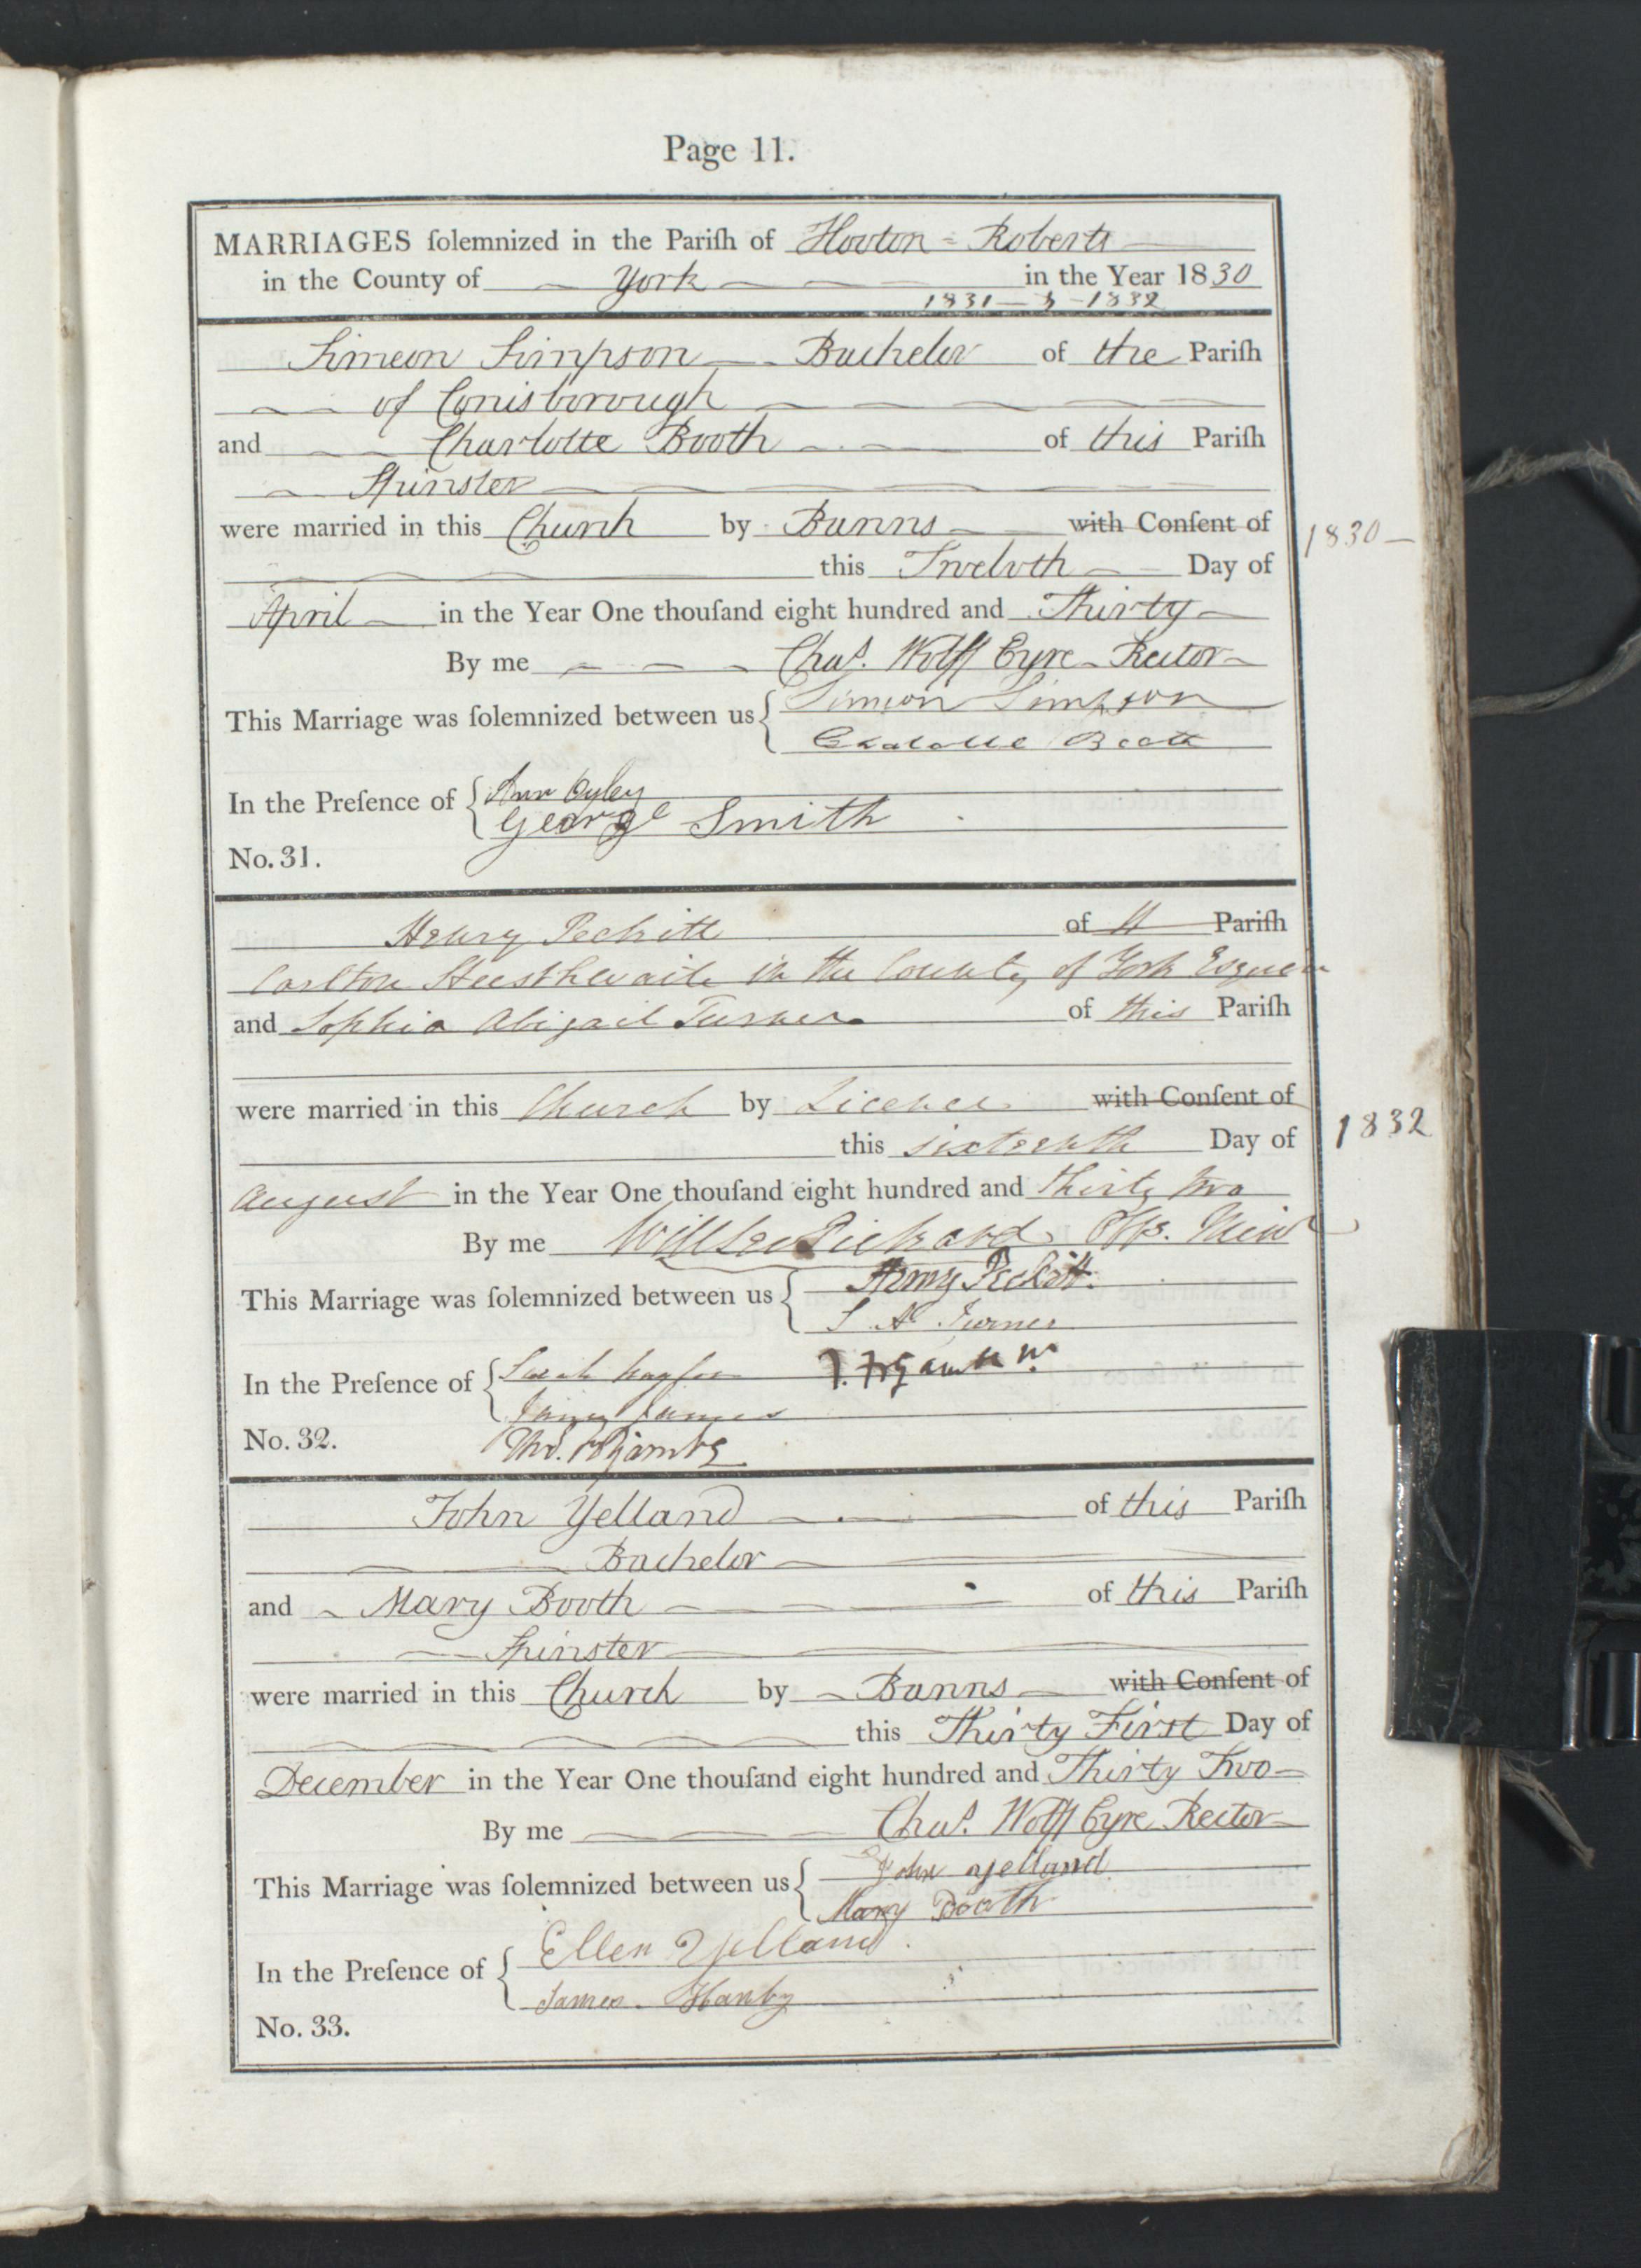 Page 11.
MARRIAGES ſolemnized in the Pariſh of Hooton = Roberts
in the County of York in the Year 1830
1831 — & — 1832
Simeon Simpson Bachelor of the Pariſh
of Conisborough
and Charlotte Booth of this Pariſh
Spinster
were married in this Church by Banns with Conſent of
1830 —
this Twelvth Day of
April in the Year One thouſand eight hundred and Thirty
By me Chas. Wolff Eyre Rector
This Marriage was ſolemnized between us Simeon Simpson
Booth
In the Preſence of Ann Oxley
George Smith
No. 31.
Henry Peckitt of Pariſh
Carlton Husthwaite in the County of York Esquire
and Sophia Abigail Turner of this Pariſh
were married in this Church by Licence with Conſent of
this sixteenth Day of
1832
August in the Year One thouſand eight hundred and thirty two
By me Pickard Offg. Minr
This Marriage was ſolemnized between us Henry Peckitt.
S A Turner
In the Preſence of Sarah
James
No. 32. Tho. Foljambe
John Yelland of this Pariſh
Bachelor
and Mary Booth of this Pariſh
Spinster
were married in this Church by Banns with Conſent of
this Thirty First Day of
December in the Year One thouſand eight hundred and Thirty Two
By me Chas. Wolff Eyre Rector
This Marriage was ſolemnized between us John Yelland
Mary Booth
In the Preſence of Ellen Yelland.
James Hanby
No. 33.